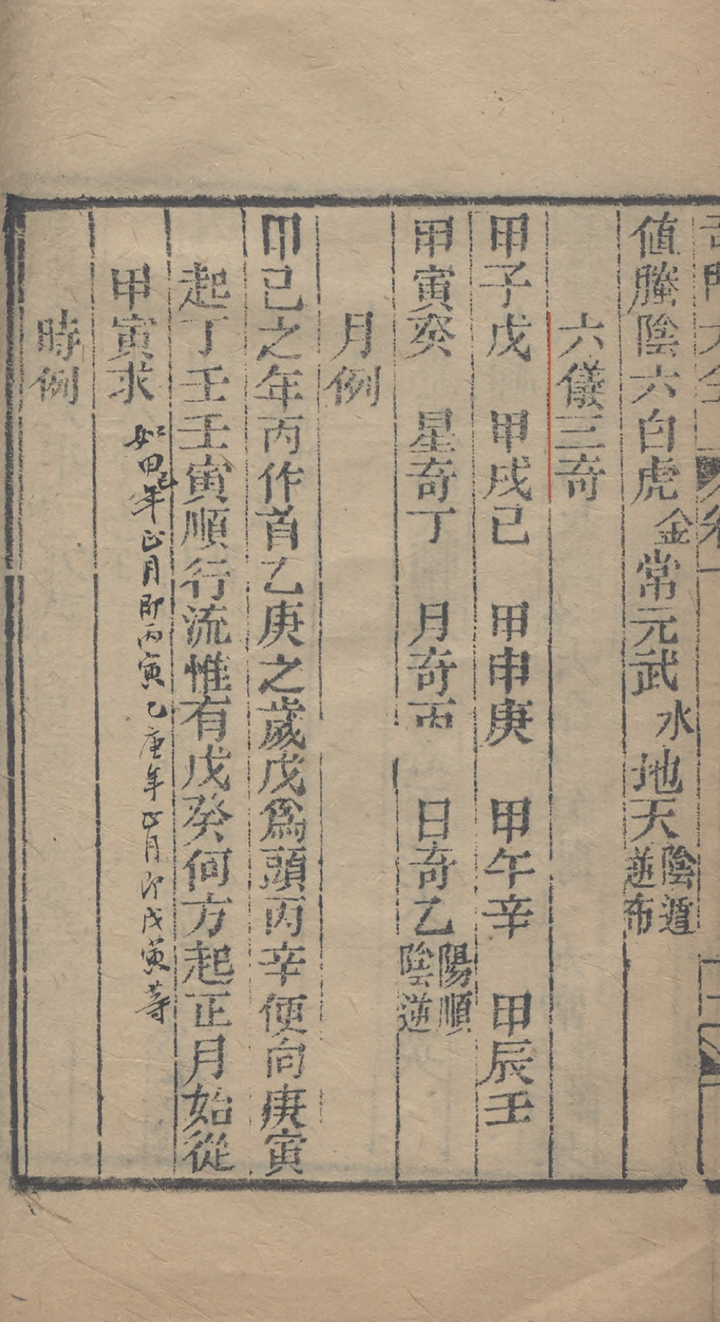 値螣陰六白虎金常元武水地天陰遁逆布
六儀三奇
甲子戊 甲戌己 甲申庚 甲午辛 甲辰壬
甲寅癸 星奇丁 月奇丙 日奇乙陽順陰逆
月例
甲己之年丙作首乙庚之歲戊爲頭丙辛便向庚寅
起丁壬壬寅順行流惟有戊癸何方起正月始從
甲寅求 如甲己年正月即丙寅乙庚年正月即戊寅等
時例